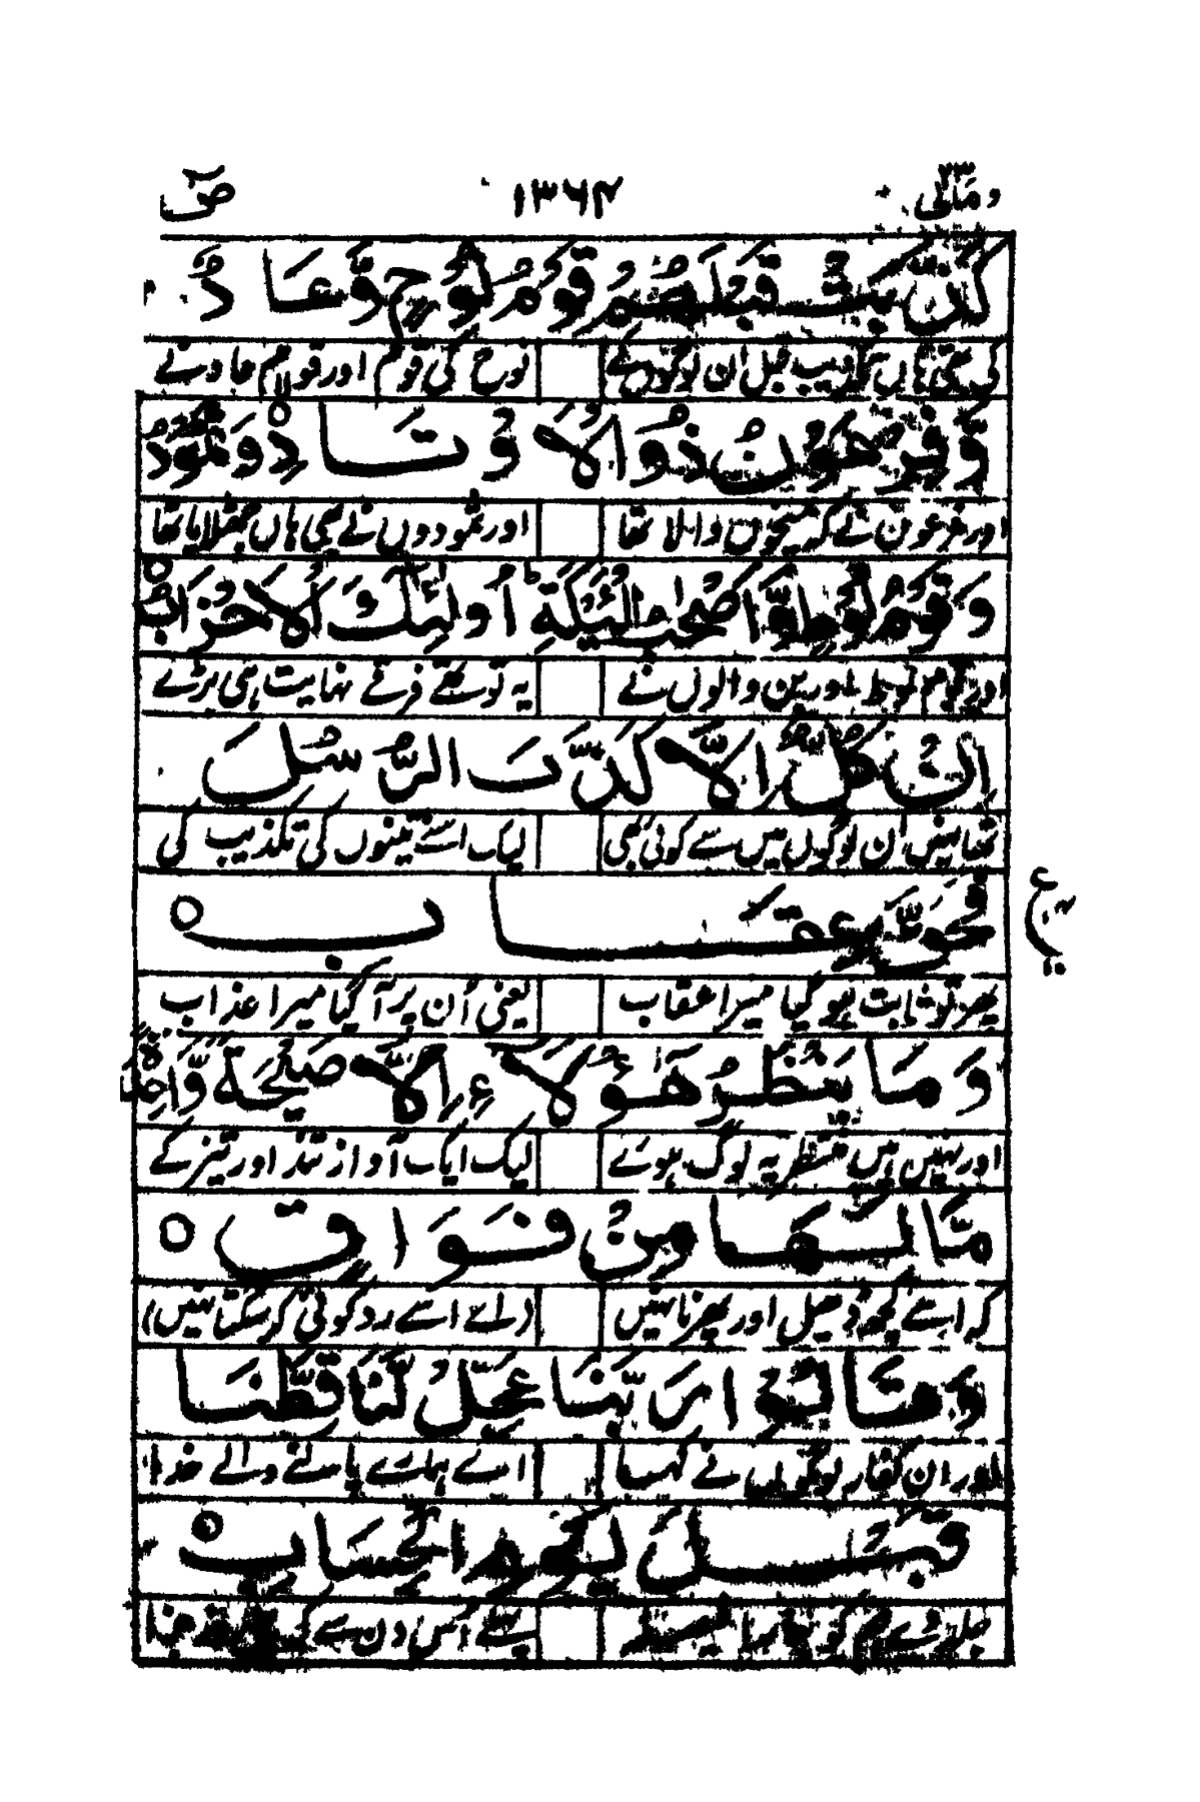 ومالی ۲۳ ۱۳۶۴ صٓ
كَذَّبَتْ قَبْلَهُمْ قَوْمُ نُوْحٍ وَّعَادٌ
کی تھی ہاں تکذیب قبل ان لوگوں کے نوح کی قوم اور قوم عاد نے
وَّفِرْعَوْنُ ذُو الْاَوْتَادِ ۝ وَثَمُوْدُ
اور فرعون نے کہ میخوں والا تھا اور ثمودوں نے بھی ہاں جھٹلایا تھا
وَقَوْمُ لُوْطٍ وَّاَصْحٰبُ لْئَيْكَةِ ؕ اُولٰٓئِكَ الْاَحْزَابُ ۝
اور قوم لوط اور بن والوں نے یہ تو تھے فرقے نہایت ہی بڑے
اِنْ كُلٌّ اِلَّا كَذَّبَ الرُّسُلَ
تھا نہیں ان لوگوں میں سے کوئی بھی لیک اسنے تینوں کی تکذیب کی
فَحَقَّ عِقَابِ ۝ ع
پھر تو ثابت ہو گیا میرا عقاب یعنی اُن پر آ گیا میرا عذاب
وَمَا يَنْظُرُ هٰٓؤُلَآءِ اِلَّا صَيْحَةً وَّاحِدَةً
اور نہیں ہیں منتظر یہ لوگ ہوے لیک ایک آواز تند اور تیز کے
مَّا لَهَا مِنْ فَوَاقٍ ۝
کہ اسے کچھ ڈھیل اور پھرنا نہیں (راے اسے رد کوئی کر سکتا نہیں)
وَقَالُوْا رَبَّنَا عَجِّلْ لَّنَا قِطَّنَا
اور ان کفار لوگوں نے کہا اے ہمارے پالنے والے خدا
قَبْلَ يَوْمِ الْحِسَابِ ۝
جلد دے ہم کو پہلے اُس دن سے کہ